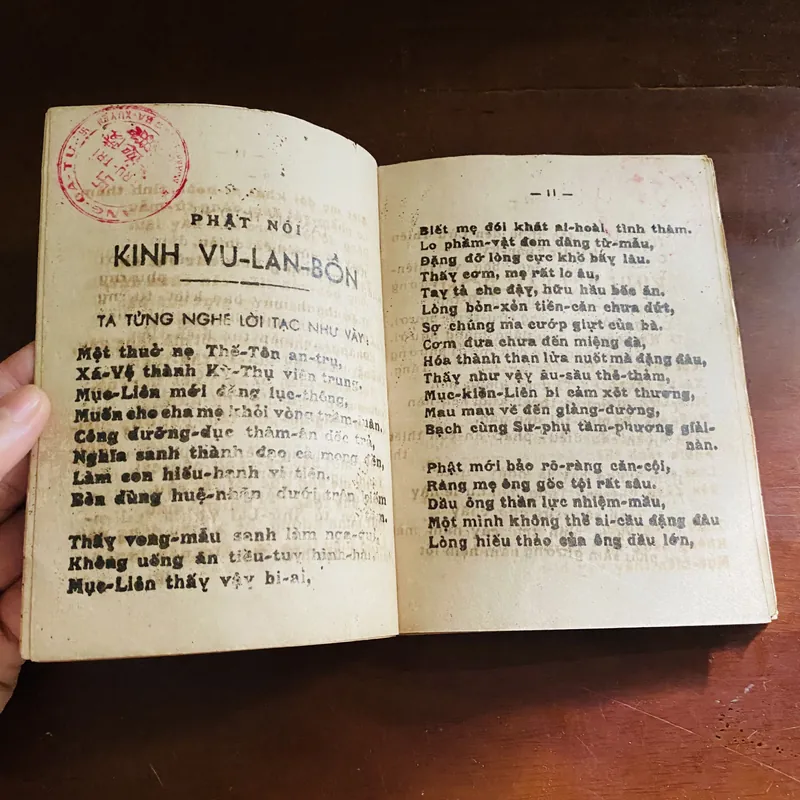 PHẬT NÓI
KINH VU-LAN-BỒN
TA TỪNG NGHE LỜI TẠC NHƯ VẦY:
Một thuở nọ Thế-Tôn an-trụ,
Xá-Vệ thành Kỳ-Thụ viên trung,
Mục-Liên mới đặng lục-thông,
Muốn cho cha mẹ khỏi vòng trầm-luân,
Công dưỡng-dục thâm-ân dốc trả,
Nghĩa sanh thành đạo cả mong đền,
Làm con hiếu-hạnh vi tiên,
Bèn dùng huệ-nhãn dưới trên
Thấy vong-mẫu sanh làm ngạ-quỉ,
Không uống ăn tiều-tụy hình-hài.
Mục-Liên thấy vậy bi-ai,
— 11 —
Biết mẹ đói khát ai-hoài, tình thâm.
Lo phẩm-vật đem dâng từ-mẫu,
Đặng đỡ lòng cực khổ bấy lâu.
Thấy cơm, mẹ rất lo âu,
Tay tả che đậy, hữu hầu bốc ăn.
Lòng bỏn-xẻn tiền-căn chưa dứt,
Sợ chúng ma cướp giựt của bà.
Cơm đưa chưa đến miệng đà,
Hóa thành than lửa nuốt mà đặng đâu,
Thấy như vậy âu-sầu thê-thảm,
Mục-kiền-Liên bi cảm xót thương,
Mau mau về đến giảng-đường,
Bạch cùng Sư-phụ tầm-phương giải-
nàn.
Phật mới bảo rõ-ràng căn-cội,
Rằng mẹ ông gốc tội rất sâu.
Dầu ông thần lực nhiệm-mầu,
Một mình không thể ai-cầu đặng đâu
Lòng hiếu thảo của ông dầu lớn,